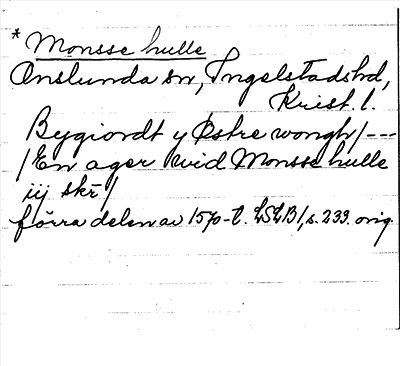 * Monsse hulle
Onslunda sn, Ingelstads hd,
Krist. l.
Bygiordt y Østre wongh/---
/En ager wid Monsse hulle
iij skr/
förra delen av 1570-t. LSLB 1, s. 233. orig.